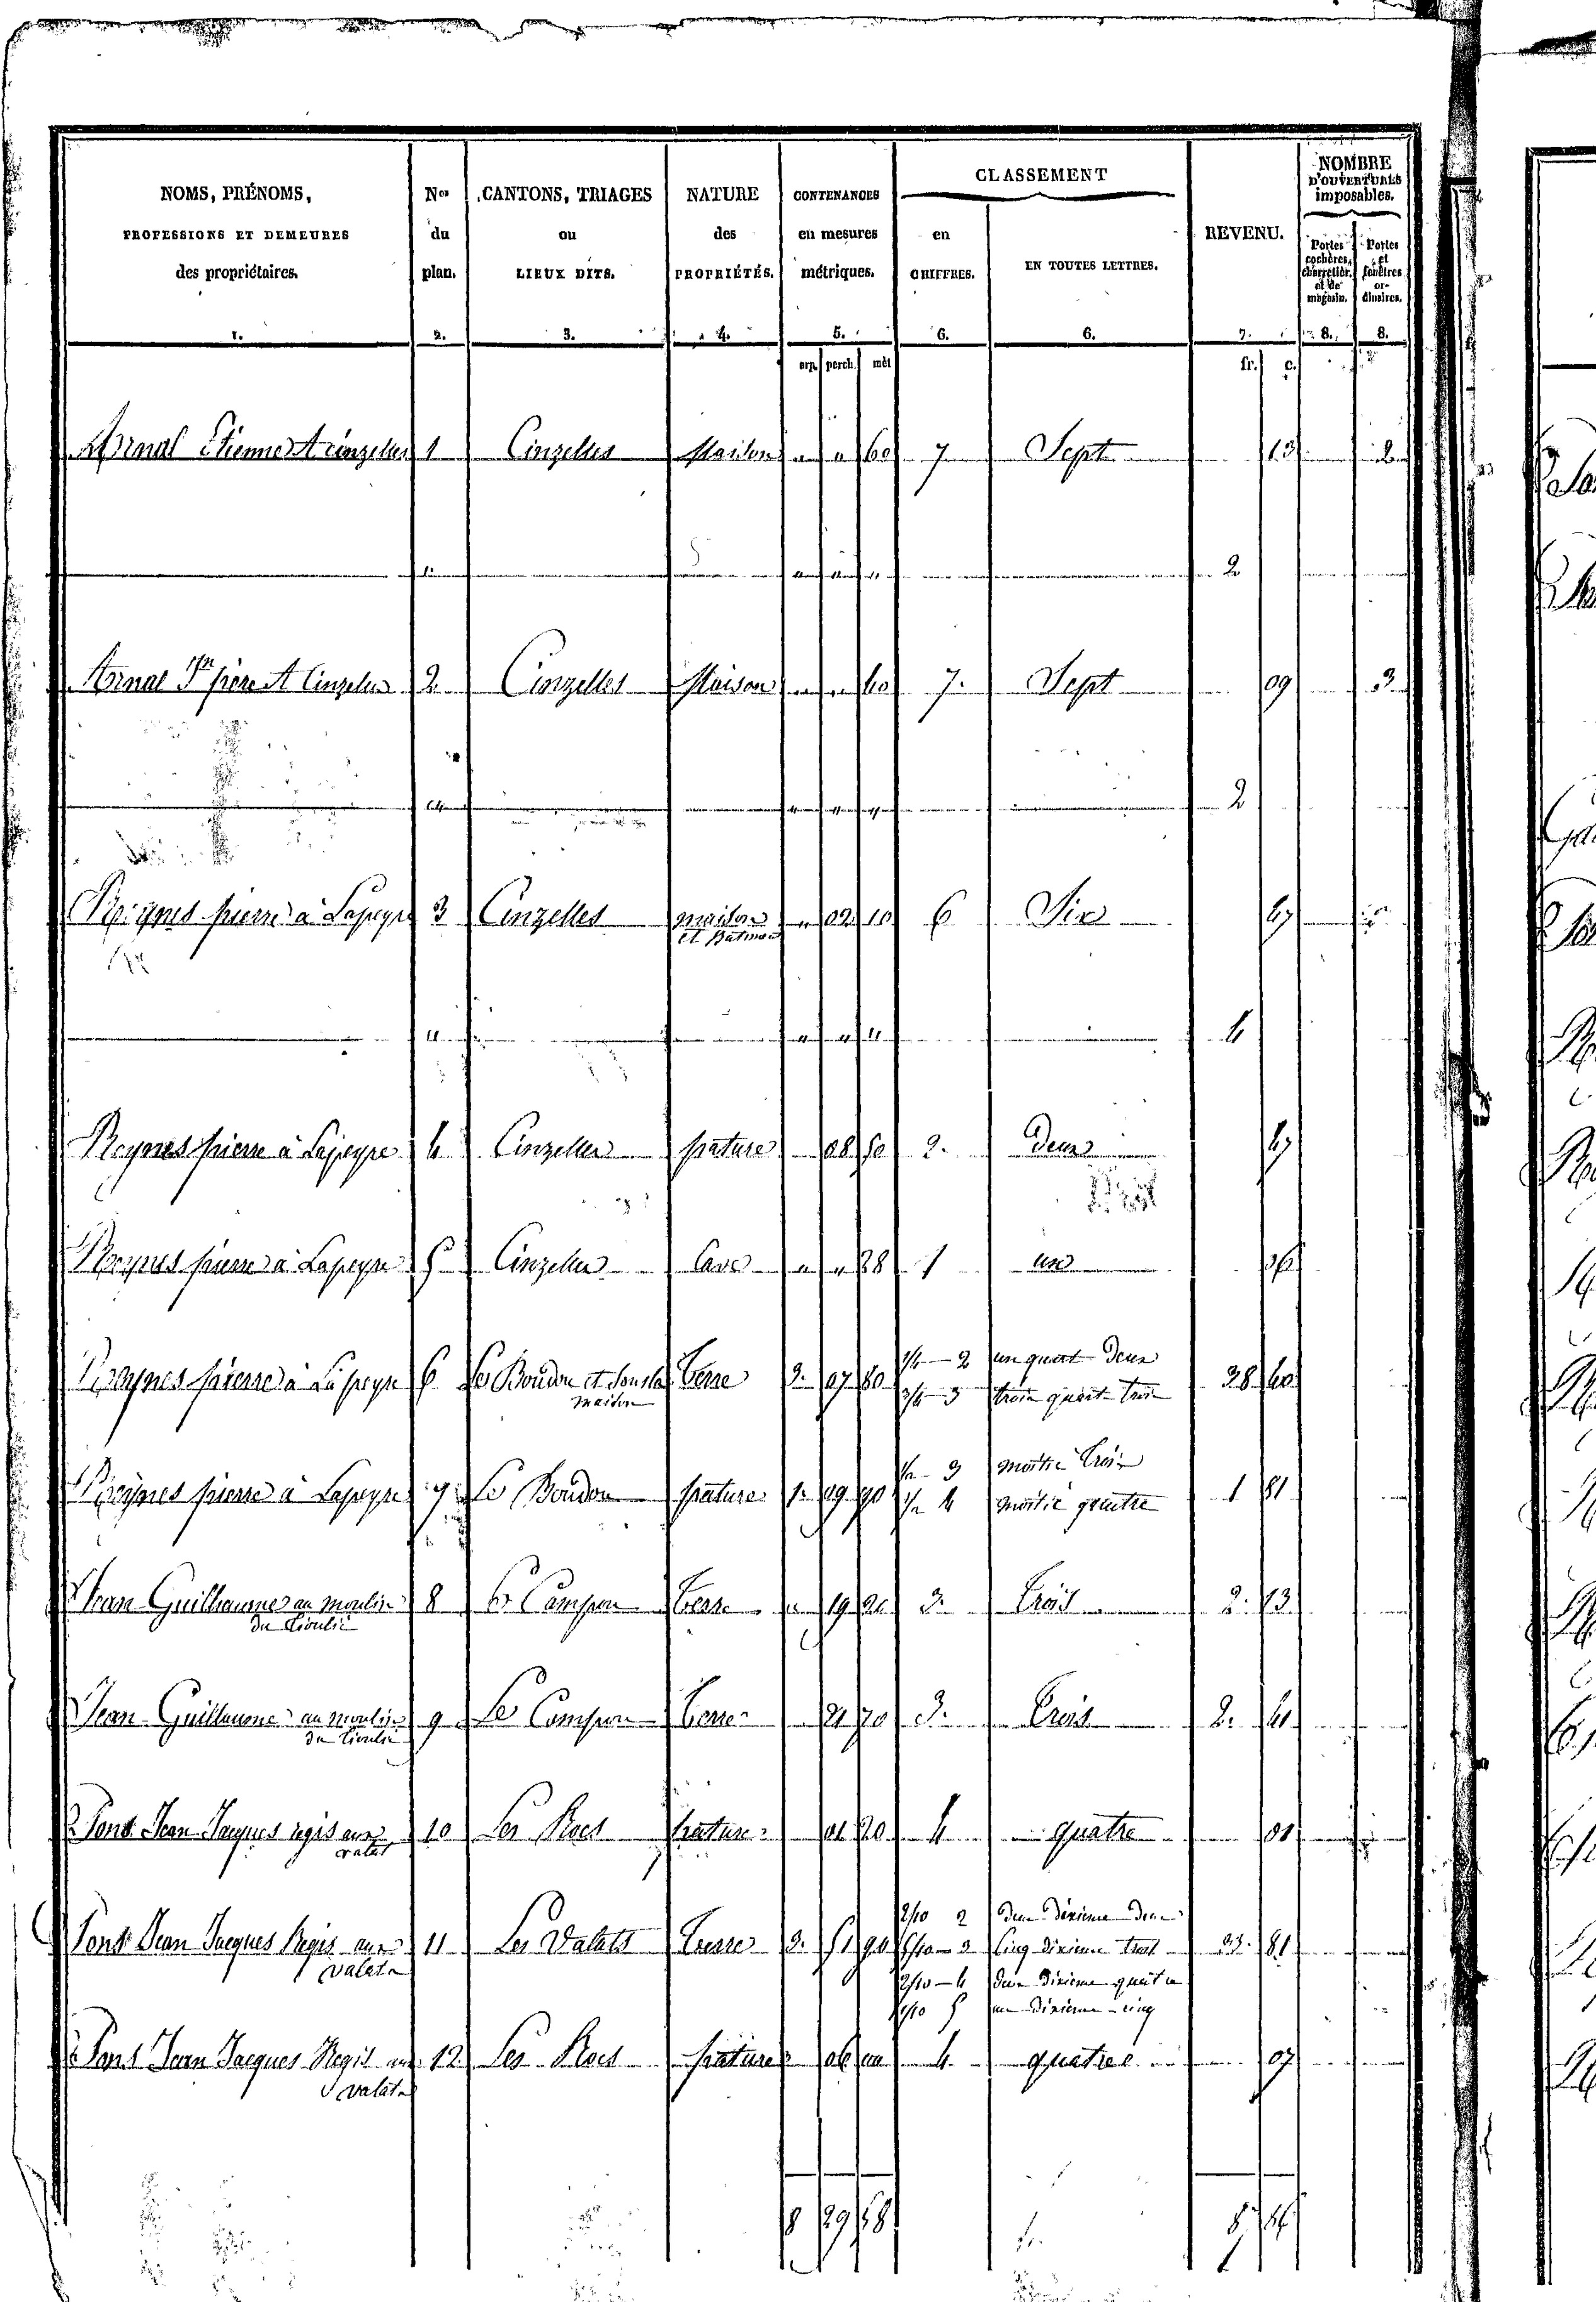 NOMS, PRÉNOMS,
PROFESSIONS ET DEMEURES
des propriétaires.
1.
Nos
du
plan.
2.
CANTONS, TRIAGES
ou
LIEUX DITS.
3.
NATURE
des
PROPRIÉTÉS.
4.
CONTENANCES
en mesures
métriques.
5.
CLASSEMENT
en
CHIFFRES.
6.
EN TOUTES LETTRES.
6.
REVENU.
7.
NOMBRE
D'OUVERTURES
imposables.
Portes
cochères,
charretièr.
et de
magasin.
8.
Portes
et
fenêtres
or-
dinaires.
8.
arp. perch. mèt fr. c.
Arnal Etienne A cinzelles 1 Cinzelles Maison " " 60 7 Sept 13 2
" " " 2
Arnal père A Cinzelles 2 Cinzelles Maison " " 60 7. Sept 09 3
" " " " 2
Reynes pierre à Lapeyre 3 Cinzelles maison " 02 10 6 Six
et Batiment
" " " " 4
Reynes pierre à Lapeyre 4 Cinzelles pature 08 50 2. deux
Reynes pierre à Lapeyre 5 Cinzelles Cave " " 28 1 une
Reynes pierre à Lapeyre 6 Le Boudou et sous la Terre 2. 07 80 1/4 - 2 un quart Deux 28 40
maison 3/4 - 3 trois quart trois
Reynes pierre à Lapeyre 7 Le Boudou pature 1. 09 90 1/2 - 3 moitie trois 1 81
1/2 4 moitié quatre
Jean Guillaume au moulin 8 Terre " 19 20 3. trois 2. 13
du
Jean Guillaume au moulin 9 Terre 21 70 3. trois 2. 41
du
Pons Jean Jacques regis aux 10 Les Rocs pature 01 20 4 quatre 01
valat
Pons Jean Jacques Regis aux 11 Les Valats Terre 3. 51 90
valats
2/10 2 deux dixieme deux
5/10 - 3 Cinq dixieme trois 23. 81
2/10 - 4 deux dixieme quatre
1/10 5 un dixieme - cinq
Pons Jean Jacques Regis aux 12 Les Rocs pature 06 4. quatre 07
valats
8 29 58